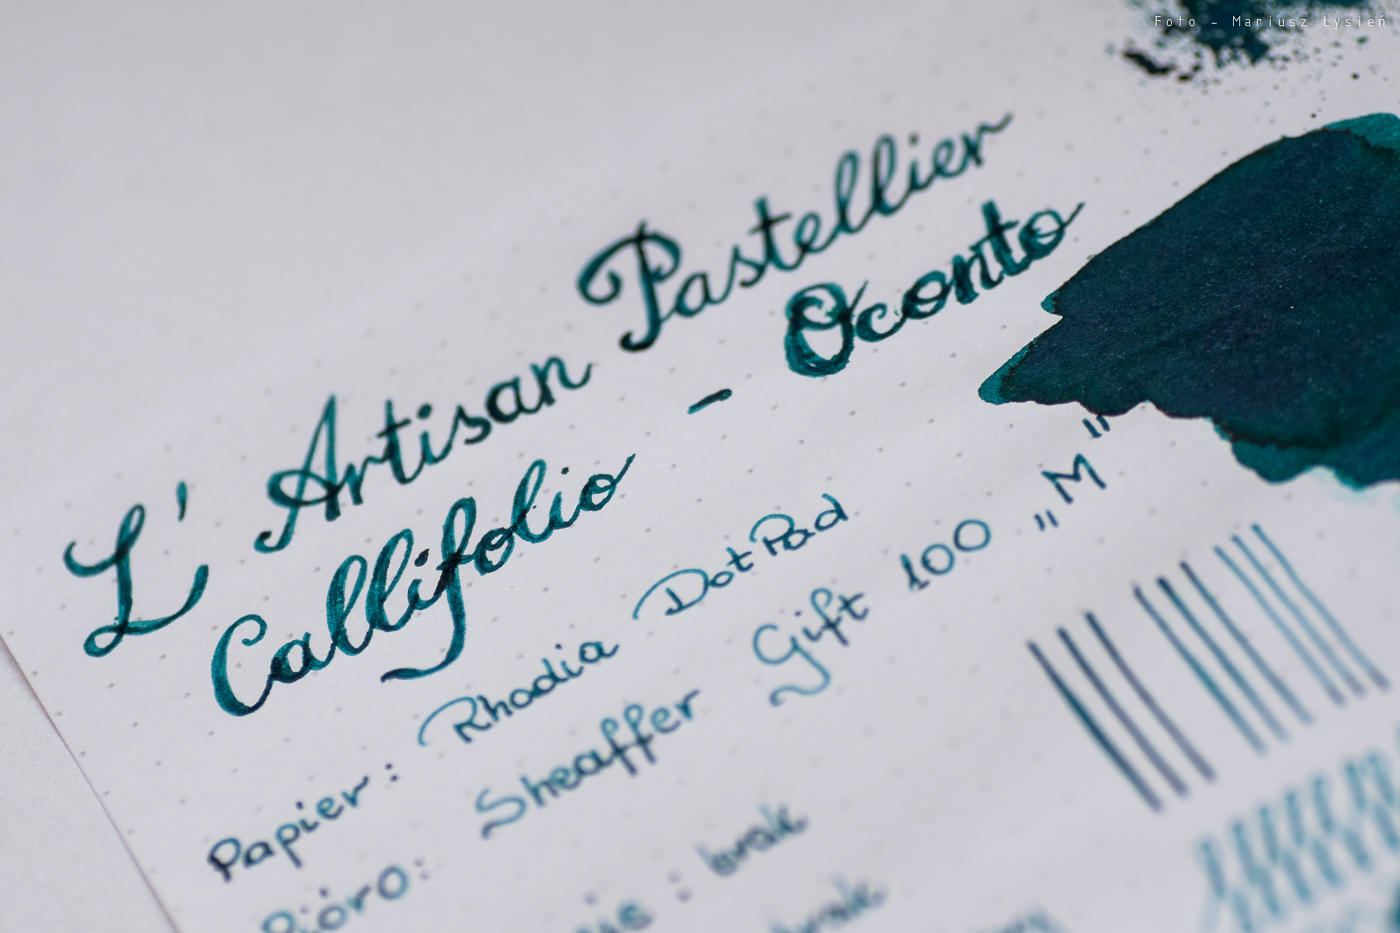 Foto - Mariusz Łysień
L' Artisan Pastellier
Callifolio - Oconto
Papier: Rhodia Dot Pad
Pióro: Sheaffer Gift 100 „M"
: brak
brak